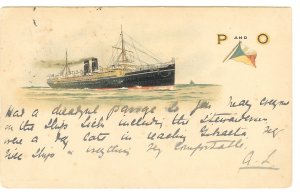 P AND O
Had a dreadful passage so far. Nearly everyone
on the ship sick including the Stewardesses
were a day late in reaching Gibraltar. Very
nice Ships & everything very comfortable.
A. L